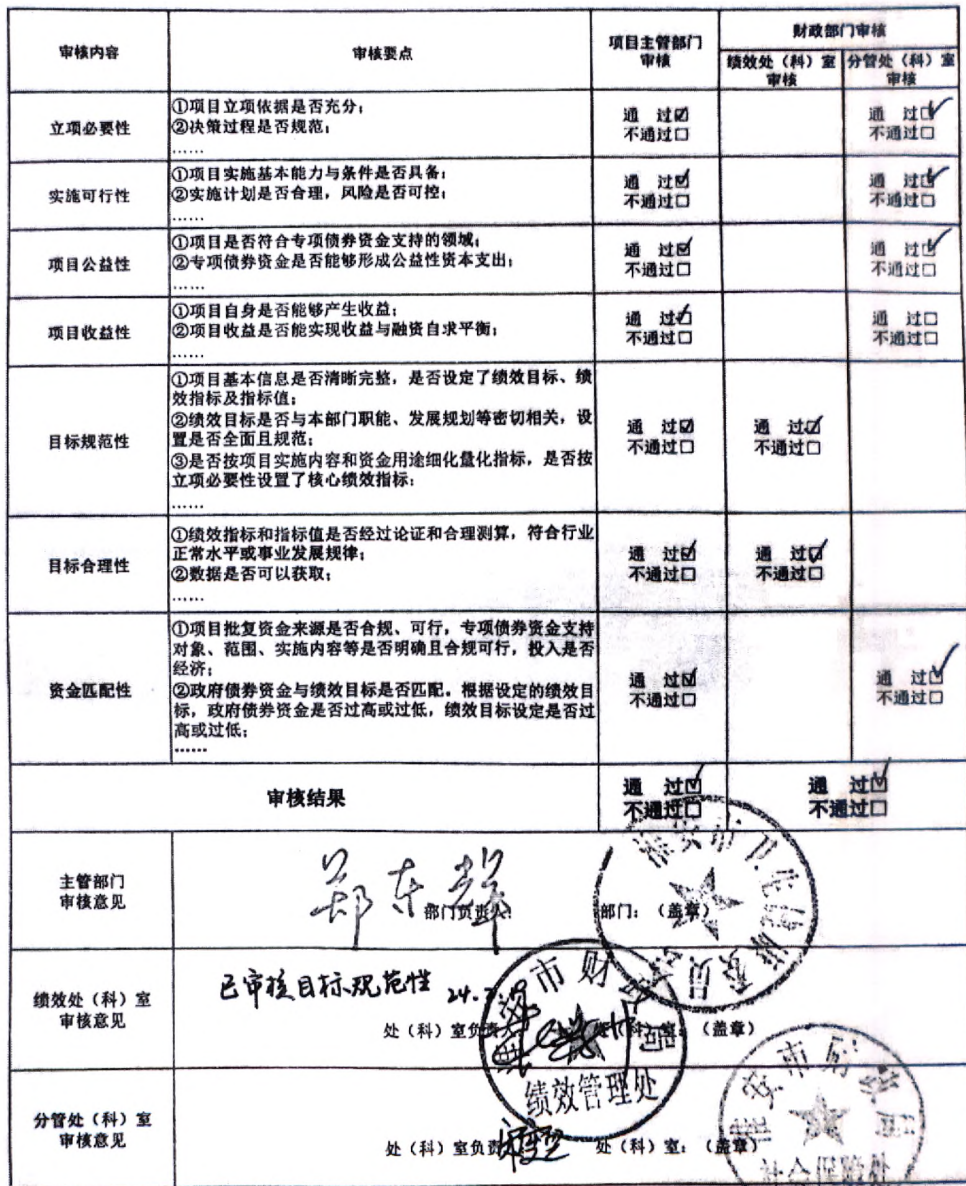 审核内容 审核要点 项目主管部门审核 财政部门审核
绩效处（科）室审核 分管处（科）室审核
立项必要性
①项目立项依据是否充分；
②决策过程是否规范；
……
通 过☑
不通过□
通 过☑
不通过□
实施可行性
①项目实施基本能力与条件是否具备；
②实施计划是否合理，风险是否可控；
……
通 过☑
不通过□
通 过☑
不通过□
项目公益性
①项目是否符合专项债券资金支持的领域；
②专项债券资金是否能够形成公益性资本支出；
……
通 过☑
不通过□
通 过☑
不通过□
项目收益性
①项目自身是否能够产生收益；
②项目收益是否能实现收益与融资自求平衡；
……
通 过☑
不通过□
通 过□
不通过□
目标规范性
①项目基本信息是否清晰完整，是否设定了绩效目标、绩
效指标及指标值；
②绩效目标是否与本部门职能、发展规划等密切相关，设
置是否全面且规范；
③是否按项目实施内容和资金用途细化量化指标，是否按
立项必要性设置了核心绩效指标；
……
通 过☑
不通过□
通 过☑
不通过□
目标合理性
①绩效指标和指标值是否经过论证和合理测算，符合行业
正常水平或事业发展规律；
②数据是否可以获取；
……
通 过☑
不通过□
通 过☑
不通过□
资金匹配性
①项目批复资金来源是否合规、可行，专项债券资金支持
对象、范围、实施内容等是否明确且合规可行，投入是否
经济；
②政府债券资金与绩效目标是否匹配。根据设定的绩效目
标，政府债券资金是否过高或过低，绩效目标设定是否过
高或过低；
……
通 过☑
不通过□
通 过☑
不通过□
审核结果
通 过☑
不通过□
通 过☑
不通过□
主管部门
审核意见
郑东辉
部门负责人： 部门：（盖章）
淮安市卫生健康委员会
绩效处（科）室
审核意见
已审核目标规范性
处（科）室负责人： 处（科）室：（盖章）
淮安市财政局
绩效管理处
分管处（科）室
审核意见
处（科）室负责 处（科）室：（盖章）
淮安市财政局
社会保障处